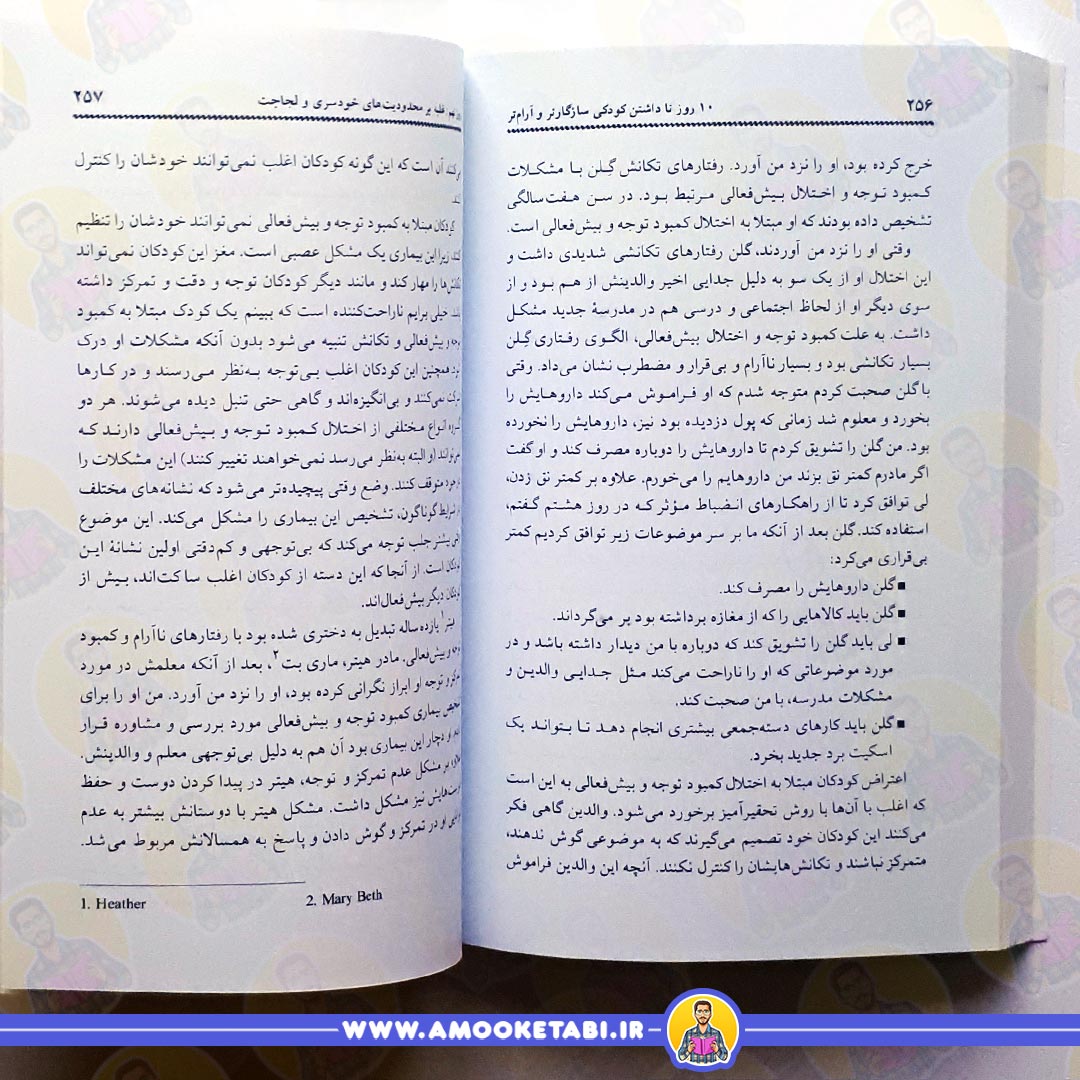 ۲۵۶
۱۰ روز تا داشتن کودکی سازگارتر و آرام‌تر
خرج کرده بود، او را نزد من آورد. رفتارهای تکانش گِلن با مشکلات
کمبود توجه و اختلال بیش‌فعالی مرتبط بود. در سن هفت‌سالگی
تشخیص داده بودند که او مبتلا به اختلال کمبود توجه و بیش‌فعالی است.
وقتی او را نزد من آوردند، گلن رفتارهای تکانشی شدیدی داشت و
این اختلال او از یک سو به دلیل جدایی اخیر والدینش از هم بود و از
سوی دیگر او از لحاظ اجتماعی و درسی هم در مدرسهٔ جدید مشکل
داشت. به علت کمبود توجه و اختلال بیش‌فعالی، الگوی رفتاری گِلن
بسیار تکانشی بود و بسیار ناآرام و بی‌قرار و مضطرب نشان می‌داد. وقتی
با گلن صحبت کردم متوجه شدم که او فراموش می‌کند داروهایش را
بخورد و معلوم شد زمانی که پول دزدیده بود نیز، داروهایش را نخورده
بود. من گلن را تشویق کردم تا داروهایش را دوباره مصرف کند و او گفت
اگر مادرم کمتر نق بزند من داروهایم را می‌خورم. علاوه بر کمتر نق زدن،
لی توافق کرد تا از راهکارهای انضباط مؤثر که در روز هشتم گفتم،
استفاده کند. گلن بعد از آنکه ما بر سر موضوعات زیر توافق کردیم کمتر
بی‌قراری می‌کرد:
■ گلن داروهایش را مصرف کند.
■ گلن باید کالاهایی را که از مغازه برداشته بود پر می‌گرداند.
■ لی باید گلن را تشویق کند که دوباره با من دیدار داشته باشد و در
مورد موضوعاتی که او را ناراحت می‌کند مثل جدایی والدین و
مشکلات مدرسه، با من صحبت کند.
■ گلن باید کارهای دسته‌جمعی بیشتری انجام دهد تا بتواند یک
اسکیت برد جدید بخرد.
اعتراض کودکان مبتلا به اختلال کمبود توجه و بیش‌فعالی به این است
که اغلب با آن‌ها با روش تحقیرآمیز برخورد می‌شود. والدین گاهی فکر
می‌کنند این کودکان خود تصمیم می‌گیرند که به موضوعی گوش ندهند،
متمرکز نباشند و تکانش‌هایشان را کنترل نکنند. آنچه این والدین فراموش
غلبه بر محدودیت‌های خودسری و لجاجت
۲۵۷
می‌کنند آن است که این گونه کودکان اغلب نمی‌توانند خودشان را کنترل
کودکان مبتلا به کمبود توجه و بیش‌فعالی نمی‌توانند خودشان را تنظیم
کنند، زیرا این بیماری یک مشکل عصبی است. مغز این کودکان نمی‌تواند
را مهار کند و مانند دیگر کودکان توجه و دقت و تمرکز داشته
خیلی برایم ناراحت‌کننده است که ببینم یک کودک مبتلا به کمبود
توجه و بیش‌فعالی و تکانش تنبیه می‌شود بدون آنکه مشکلات او درک
همچنین این کودکان اغلب بی‌توجه به‌نظر می‌رسند و در کارها
شرکت نمی‌کنند و بی‌انگیزه‌اند و گاهی حتی تنبل دیده می‌شوند. هر دو
انواع مختلفی از اختلال کمبود توجه و بیش‌فعالی دارند که
(و البته به‌نظر می‌رسد نمی‌خواهند تغییر کنند) این مشکلات را
متوقف کنند. وضع وقتی پیچیده‌تر می‌شود که نشانه‌های مختلف
شرایط گوناگون، تشخیص این بیماری را مشکل می‌کند. این موضوع
بیشتر جلب توجه می‌کند که بی‌توجهی و کم‌دقتی اولین نشانهٔ این
کودکان است. از آنجا که این دسته از کودکان اغلب ساکت‌اند، بیش از
کودکان دیگر بیش‌فعال‌اند.
هیتر۱ یازده‌ساله تبدیل به دختری شده بود با رفتارهای ناآرام و کمبود
توجه و بیش‌فعالی. مادر هیتر، ماری بت۲، بعد از آنکه معلمش در مورد
تمرکز و توجه او ابراز نگرانی کرده بود، او را نزد من آورد. من او را برای
تشخیص بیماری کمبود توجه و بیش‌فعالی مورد بررسی و مشاوره قرار
دچار این بیماری بود آن هم به دلیل بی‌توجهی معلم و والدینش.
علاوه بر مشکل عدم تمرکز و توجه، هیتر در پیدا کردن دوست و حفظ
نیز مشکل داشت. مشکل هیتر با دوستانش بیشتر به عدم
او در تمرکز و گوش دادن و پاسخ به همسالانش مربوط می‌شد.
1. Heather 2. Mary Beth
WWW.AMOOKETABI.IR